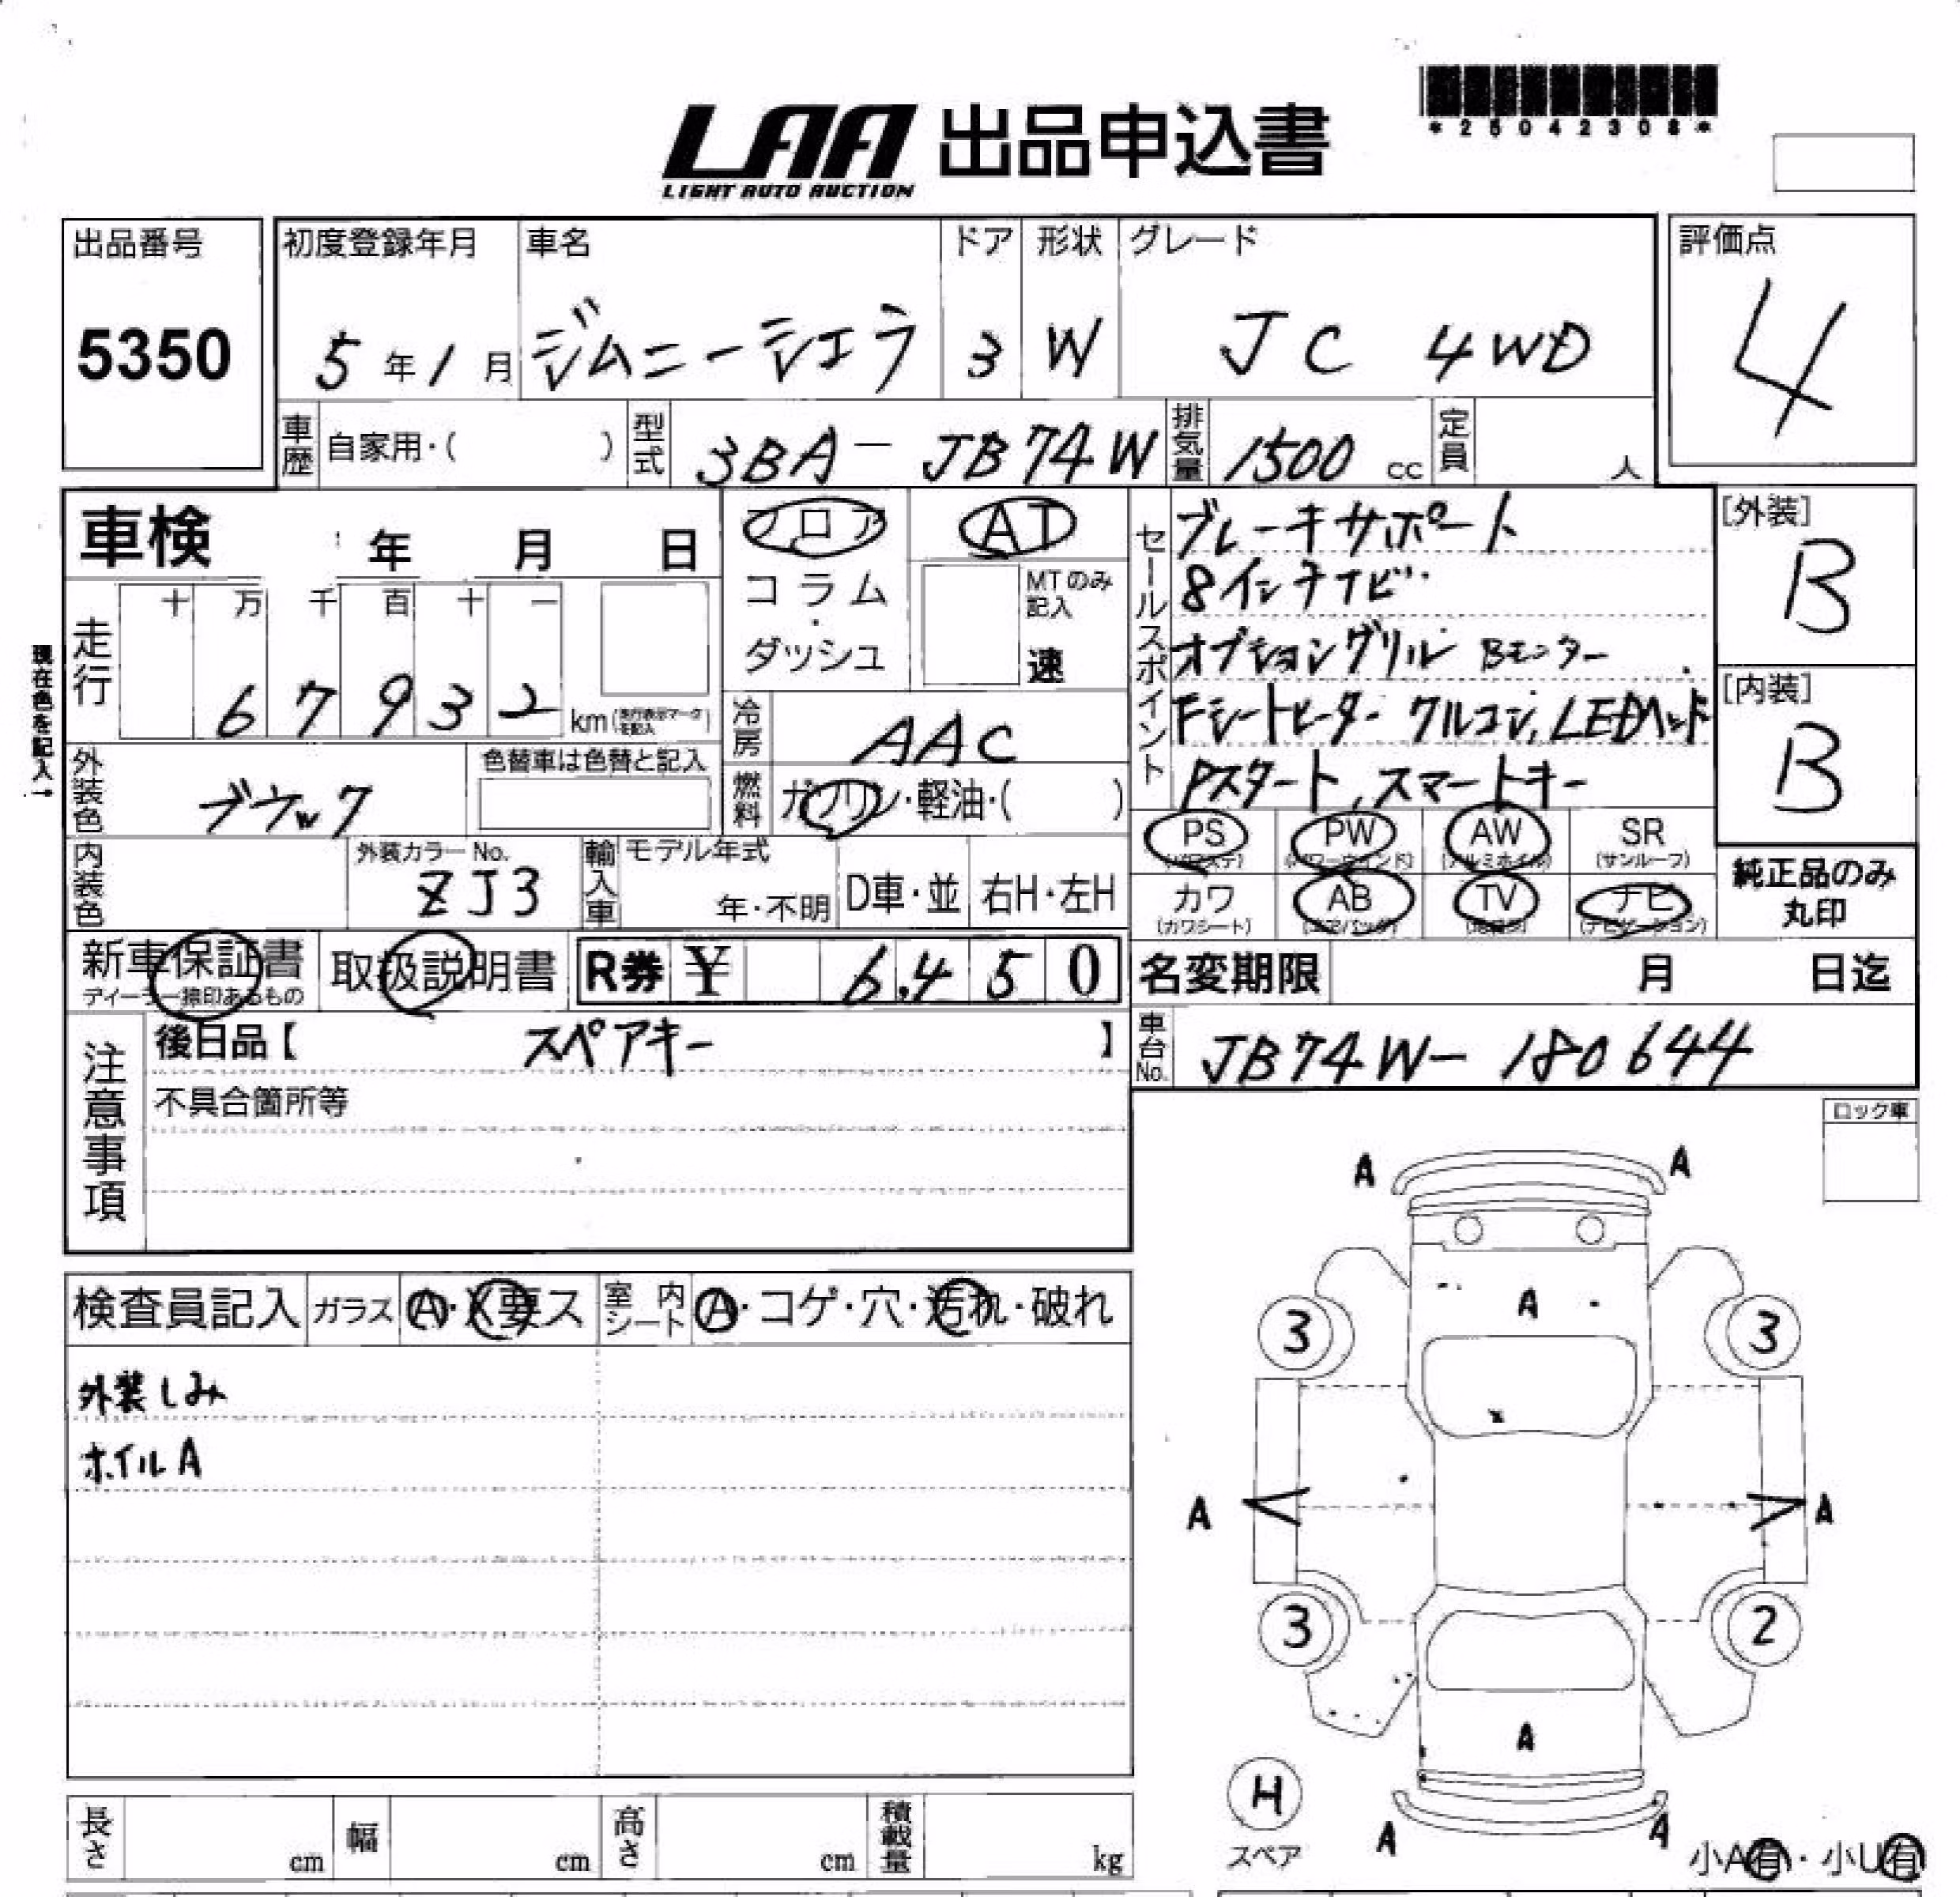 *25042308*
LAA 出品申込書
LIGHT AUTO AUCTION
出品番号 初度登録年月 車名 ドア 形状 グレード 評価点
5350 5年1月 ジムニーシエラ 3 W JC 4WD 4
車歴 自家用・( ) 型式 3BA-JB74W 排気量 1500 cc 定員 人
車検 年 月 日 フロア AT セールスポイント ブレーキサポート [外装]
8インチナビ B
コラム・ダッシュ MTのみ記入 速
走行 十 万 千 百 十 一
67932 km (走行表示マークを記入)
オプショングリル Bモニター
Fシートヒーター クルコン, LEDヘッド [内装]
Pスタート, スマートキー B
現在色を記入→
冷房 AAC
外装色 ブラック 色替車は色替と記入
燃料 ガソリン・軽油・( )
PS (パワステ) PW (パワーウインド) AW (アルミホイル) SR (サンルーフ)
カワ (カワシート) AB (エアバッグ) TV ナビ (ナビゲーション)
純正品のみ
丸印
内装色 外装カラーNo. ZJ3 輸入車 モデル年式 年・不明 D車・並 右H・左H
新車保証書 取扱説明書 R券 ¥ 6,450 名変期限 月 日迄
ディーラー捺印あるもの
注意事項 後日品【 スペアキー 】 車台No. JB74W-180644
不具合箇所等
ロック車
検査員記入 ガラス A・X要ス 室内シート A・コゲ・穴・汚れ・破れ
外装しみ
ホイルA
A A
A
3 3
A A
3 2
A
H
スペア
A A
小A有・小U有
長さ cm 幅 cm 高さ cm 積載量 kg